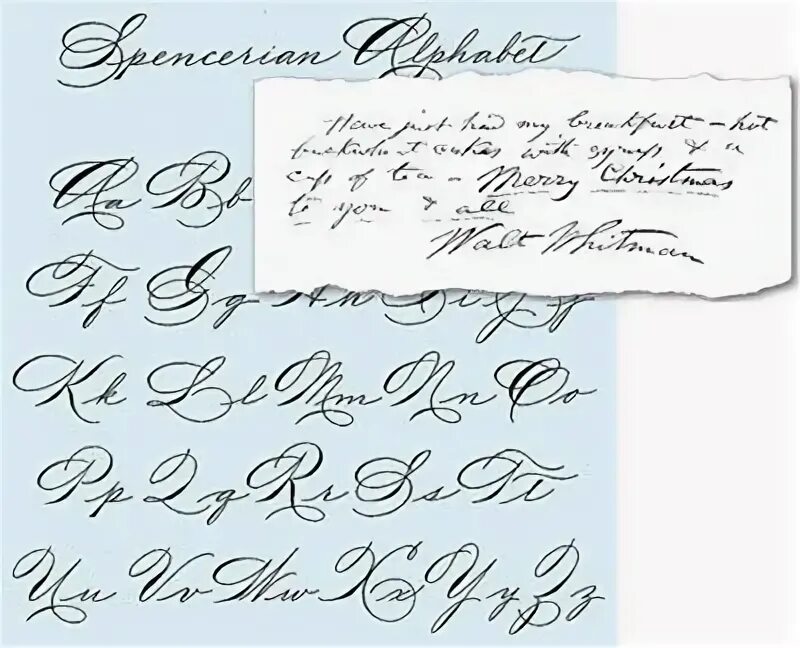 Spencerian Alphabet
Have just had my breakfast – hot
buckwheat cakes with syrup & a
cup of tea – Merry Christmas
to you & all
Walt Whitman
Aa Bb
Ff Gg Hh Ii Jj
Kk Ll Mm Nn Oo
Pp Qq Rr Ss Tt
Uu Vv Ww Xx Yy Zz